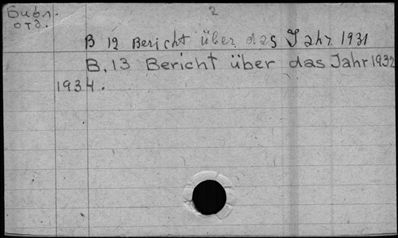 Библ. 2
отд.
B 12 Bericht über das Jahr 1931
B. 13 Bericht über das Jahr 1932
1934.